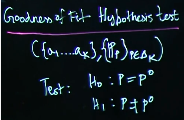 Goodness of Fit Hypothesis test
({a₁....aₖ},{ℙₚ}ₚ∈Δₖ)
Test: H₀ : P = P⁰
H₁ : P ≠ P⁰